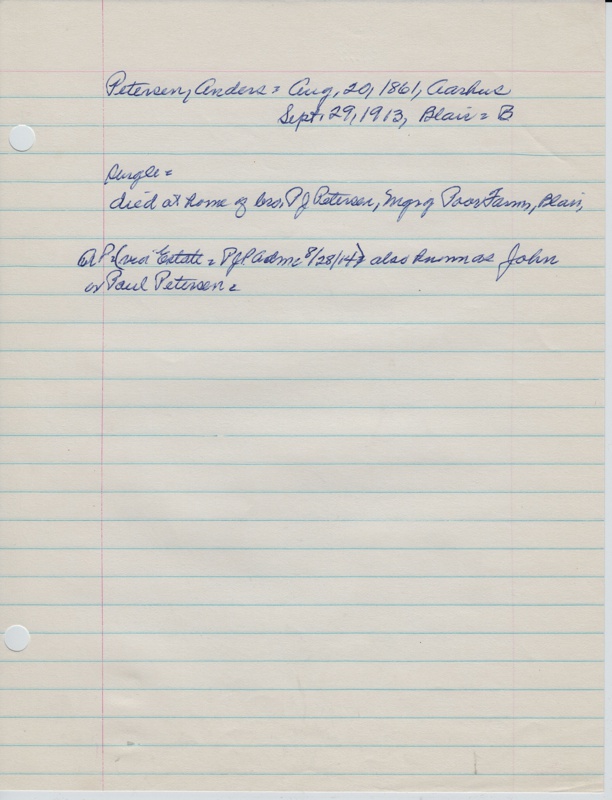 Petersen, Anders = Aug, 20, 1861, Aarhus
Sept. 29, 1913, Blair = B
single =
died at home of bro, P J Petersen, Mgr of Poor Farm, Blair,
Estate = PJP adm: 8/28/14) also known as John
or Paul Petersen =